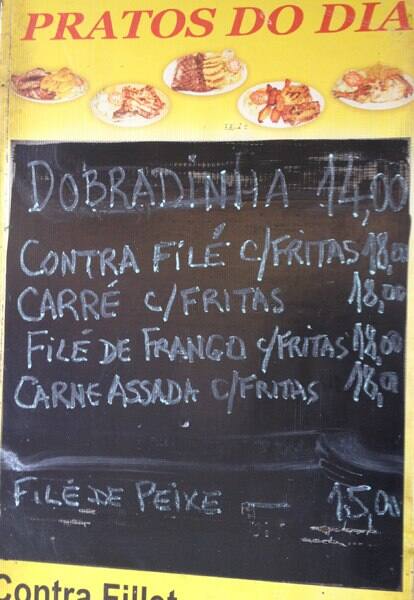 PRATOS DO DIA
DOBRADINHA 14,00
CONTRA FILÉ C/FRITAS 18,00
CARRÉ C/FRITAS 18,00
FILÉ DE FRANGO C/FRITAS 18,00
CARNE ASSADA C/FRITAS 18,0
FILÉ DE PEIXE — 15,00
Contra Fillet